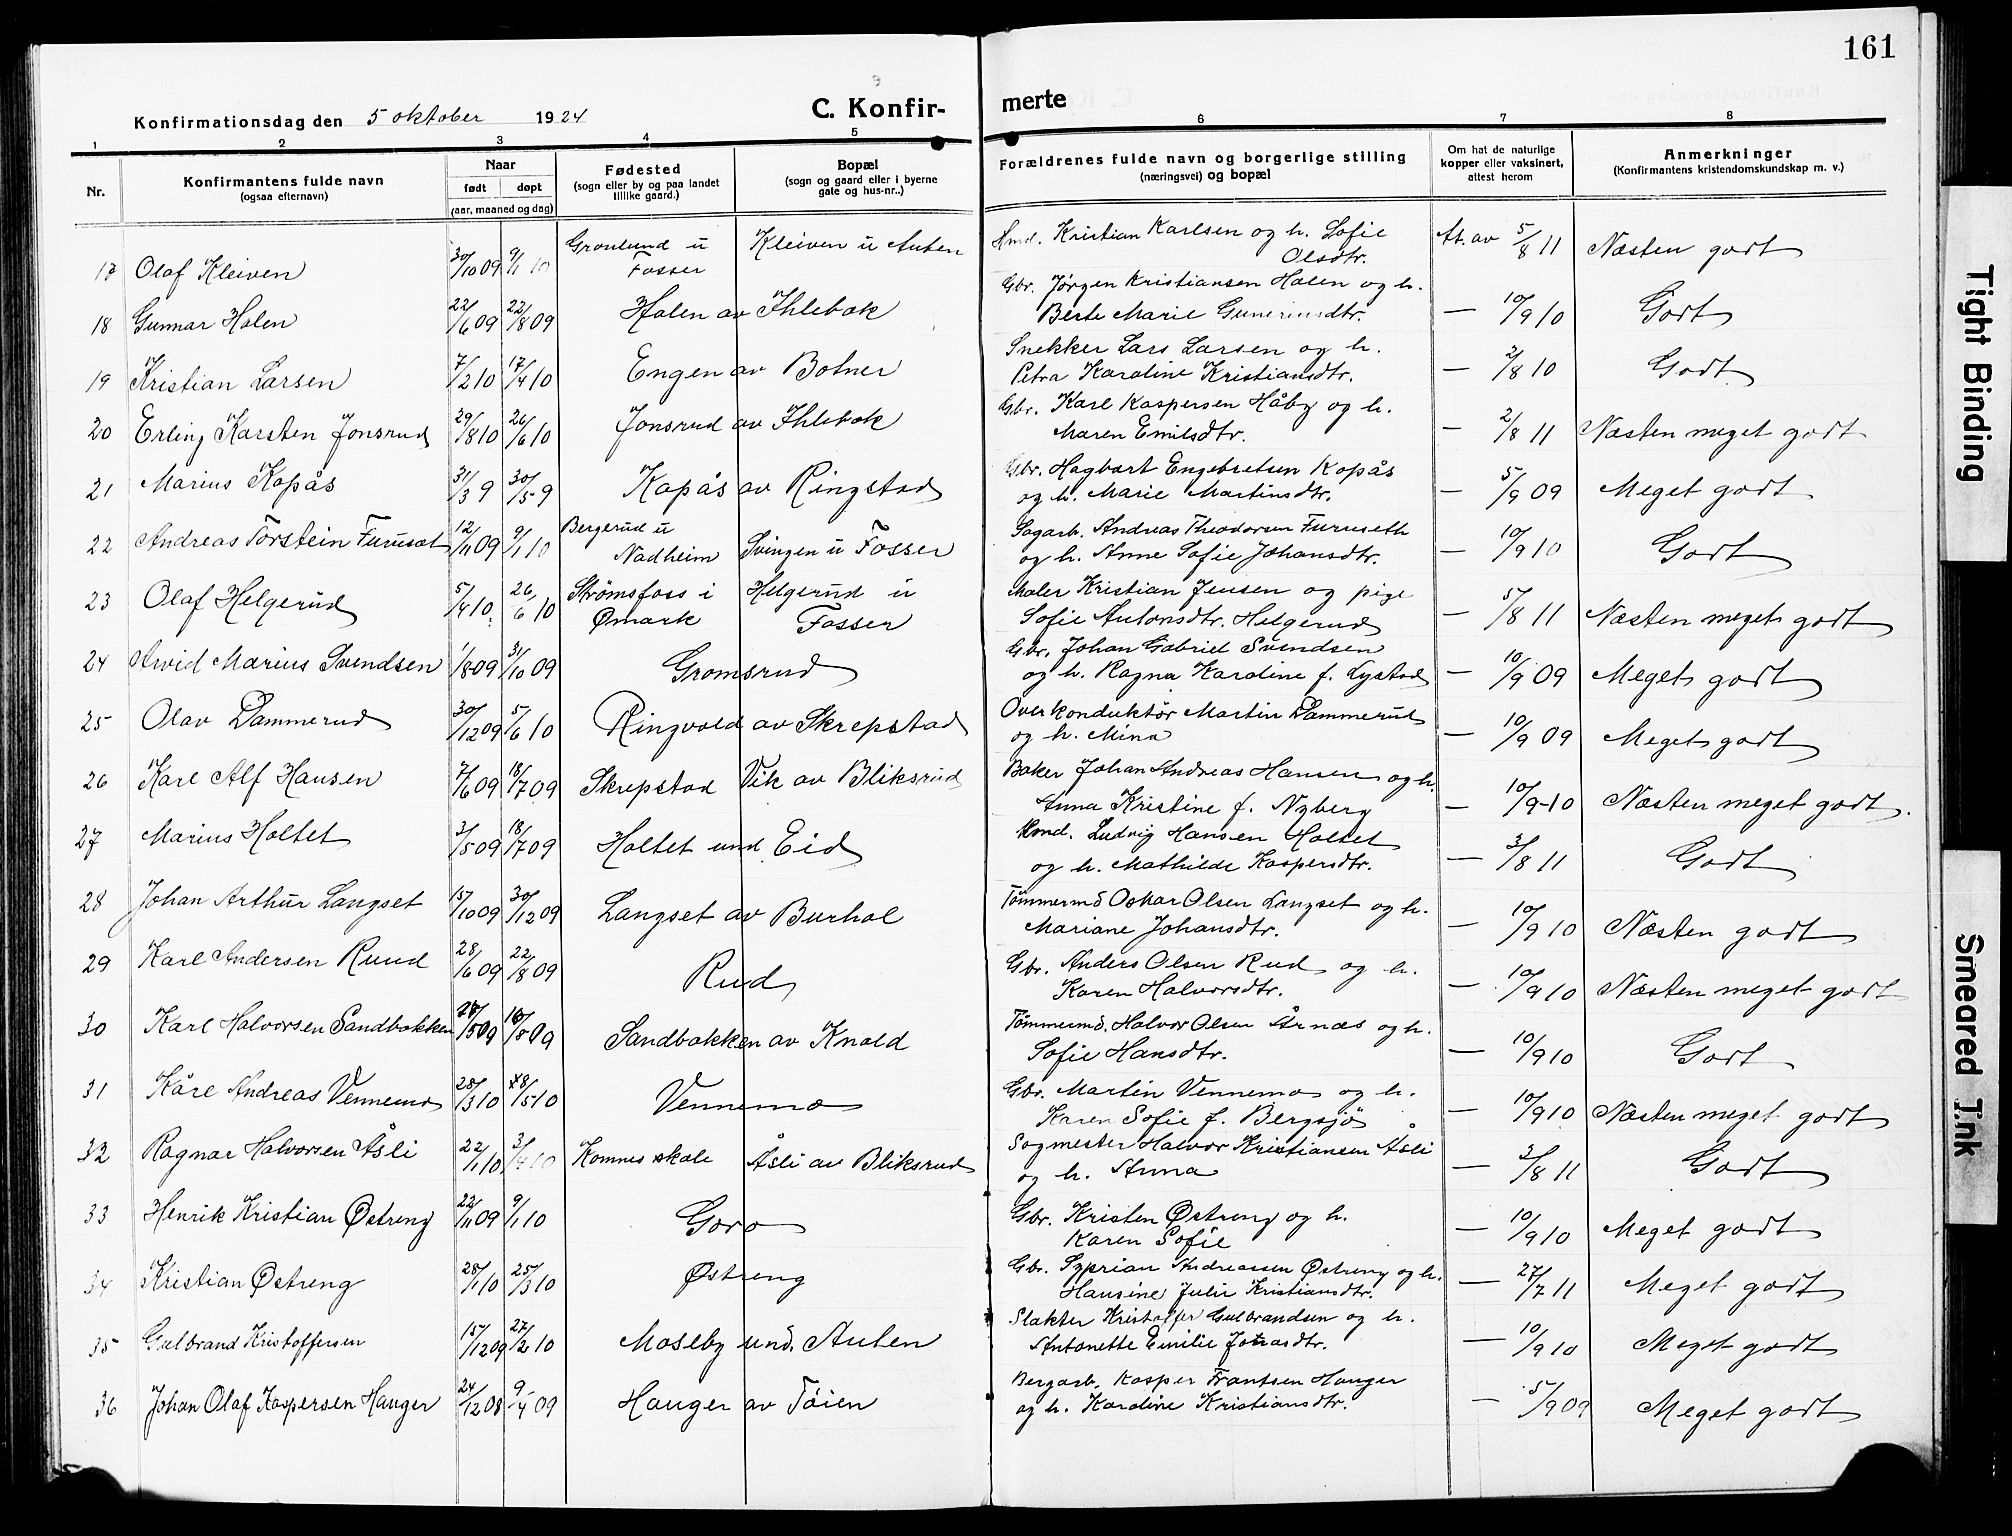 161
Konfirmationsdag den 5 oktober 1924
C. Konfir-
merte
1 2 3 4 5 6 7 8
Nr.
Konfirmantens fulde navn
(ogsaa efternavn)
Naar
født døpt
(aar, maaned og dag)
Fødested
(sogn eller by og paa landet
tillike gaard.)
Bopæl
(sogn og gaard eller i byerne
gate og hus-nr..)
Forældrenes fulde navn og borgerlige stilling
(næringsvei) og bopæl
Om hat de naturlige
kopper eller vaksinert,
attest herom
Anmerkninger
(Konfirmantens kristendomskundskap m. v.)
17 Olaf Kleiven 30/10 09 9/1 10 Gronlund u Fosser Kleiven u Auten Hmd. Kristian Karlsen og h. Sofie Olsdtr. At. av 5/8 11 Næsten godt
18 Gunnar Holen 22/6 09 22/8 09 Holen av Ihlebæk Gbr. Jørgen Kristiansen Holen og h. Berte Marie Guneriusdtr. — 10/9 10 Godt
19 Kristian Larsen 7/2 10 17/4 10 Engen av Botner Snekker Lars Larsen og h. Petra Karoline Kristiansdtr. — 2/8 10 Godt
20 Erling Karsten Jonsrud 29/8 10 26/6 10 Jonsrud av Ihlebæk Gbr. Karl Kaspersen Håby og h. Maren Emilsdtr. — 2/8 11 Næsten meget godt
21 Marius Kopås 31/3 9 30/5 9 Kopås av Ringstad Gbr. Hagbart Engebretsen Kopås og h. Marie Martinsdtr. — 5/9 09 Meget godt
22 Andreas Torstein Furuset 12/11 09 9/1 10 Bergerud u Nadheim Svingen u Fosser Sagarb. Andreas Theodorsen Furuseth og h. Anne Sofie Johansdtr. — 10/9 10 Godt
23 Olaf Helgerud 5/4 10. 26/6 10 Strømsfoss i Ømark Helgerud u Fosser Maler Kristian Jensen og pige Sofie Antonsdtr. Helgerud — 5/8 11 Næsten meget godt
24 Arvid Marius Svendsen 1/8 09 31/10 09 Gromsrud Gbr. Johan Gabriel Svendsen og h. Ragna Karoline f. Lystad — 10/9 09 Meget godt
25 Olav Dammerud 30/12 09 5/6 10 Ringvold av Skrepstad Overkonduktør Martin Dammerud og h. Mina — 10/9 09 Meget godt
26 Karl Alf Hansen 7/6 09 18/7 09 Skrepstad Vik av Bliksrud Baker Johan Andreas Hansen og h. Anna Kristine f. Nyberg — 10/9 10 Næsten meget godt.
27 Marius Holtet 3/5 09 18/7 09 Holtet und Eid Hmd. Ludvig Hansen Holtet og h. Mathilde Kaspersdtr. — 3/8 11 Godt
28 Johan Arthur Langset 15/10 09 30/12 09 Langset av Burhol Tømmermd Oskar Olsen Langset og h. Mariane Johansdtr. — 10/9 10 Næsten godt
29 Karl Andersen Ruud 28/6 09 22/8 09 Rud Gbr. Anders Olsen Rud og h. Karen Halvorsdtr. — 10/9 10 Næsten meget godt
30 Karl Halvorsen Sandbakken /5 09 /8 09 Sandbakken av Knold Tømmermd. Halvor Olsen Årnæs og h. Sofie Hansdtr. — 10/9 10 Godt
31 Kåre Andreas Vennemo 28/3 10 /5 10 Vennemo Gbr. Martin Vennemo og h. Karen Sofie f. Bergsjø — 10/9 10 Næsten meget godt
32 Ragnar Halvorsen Åsli 22/1 10 3/4 10 Komnes skole Åsli av Bliksrud Sagmester Halvor Kristiansen Åsli og h. Anna — 3/8 11 Godt
33 Henrik Kristian Østreng 22/11 09 9/1 10 Goro Gbr. Kristen Østreng og h. Karen Sofie — 10/9 10 Meget godt
34 Kristian Østreng 28/1 10 25/3 10 Østreng Gbr. Syprian Andreassen Østreng og h. Hansine Julie Kristiansdtr. — 27/7 11 Meget godt
35 Gulbrand Kristoffersen 15/12 09 27/2 10 Moseby und. Auten Slakter Kristoffer Gulbrandsen og h. Antonette Emilie Jonasdtr. — 10/9 10 Meget godt
36 Johan Olaf Kaspersen Hauger 24/12 08 9/4 09 Hauger av Tøien Bergarb. Kasper Frantsen Hauger og h. Karoline Kristiansdtr. — 5/9 09 Meget godt
Tight Binding
Smeared Ink